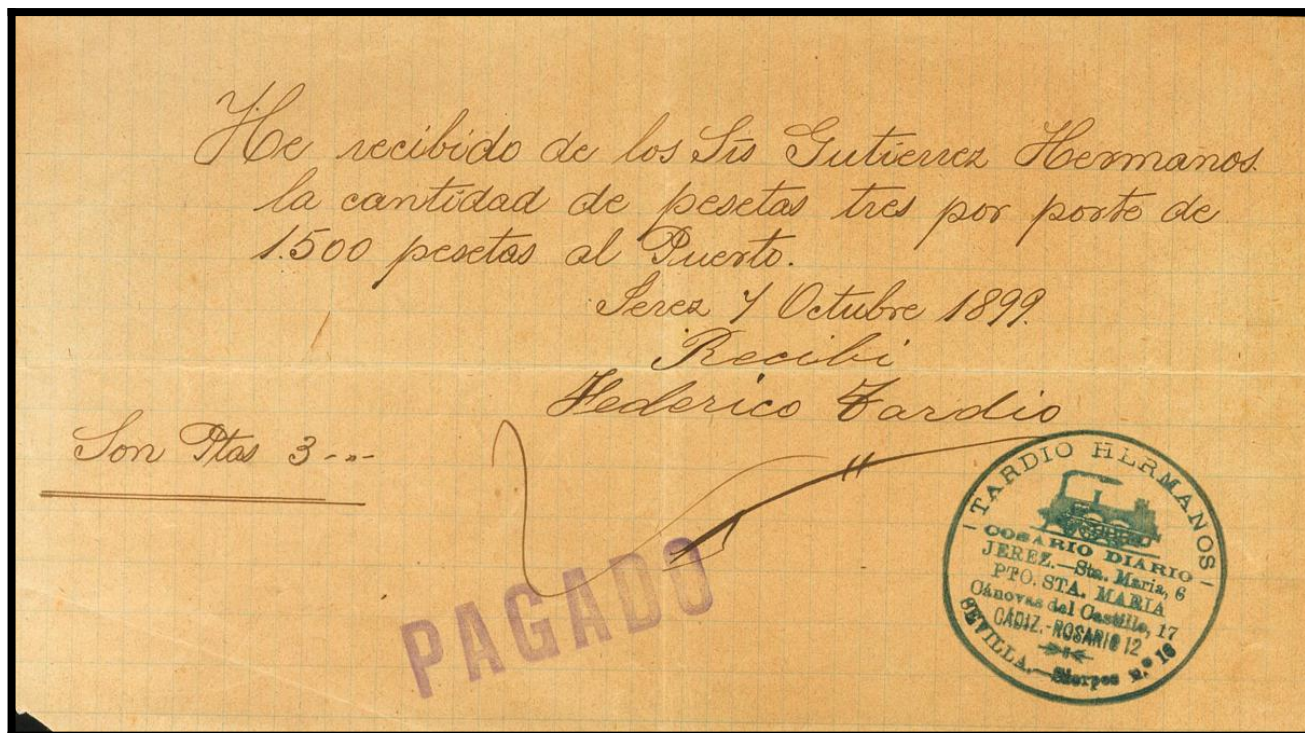 He recibido de los Srs Gutierrez Hermanos.
la cantidad de pesetas tres por porte de
1.500 pesetas al Puerto.
Jerez 7 Octubre 1899.
Recibi
Federico Tardio
Son Ptas 3-"-
PAGADO
TARDIO HERMANOS
COSARIO DIARIO
JEREZ.—Sta. Maria, 6
PTO. STA. MARIA
Cánovas del Castillo, 17
CÁDIZ.-ROSARIO 12
SEVILLA.—Sierpes n.º 16